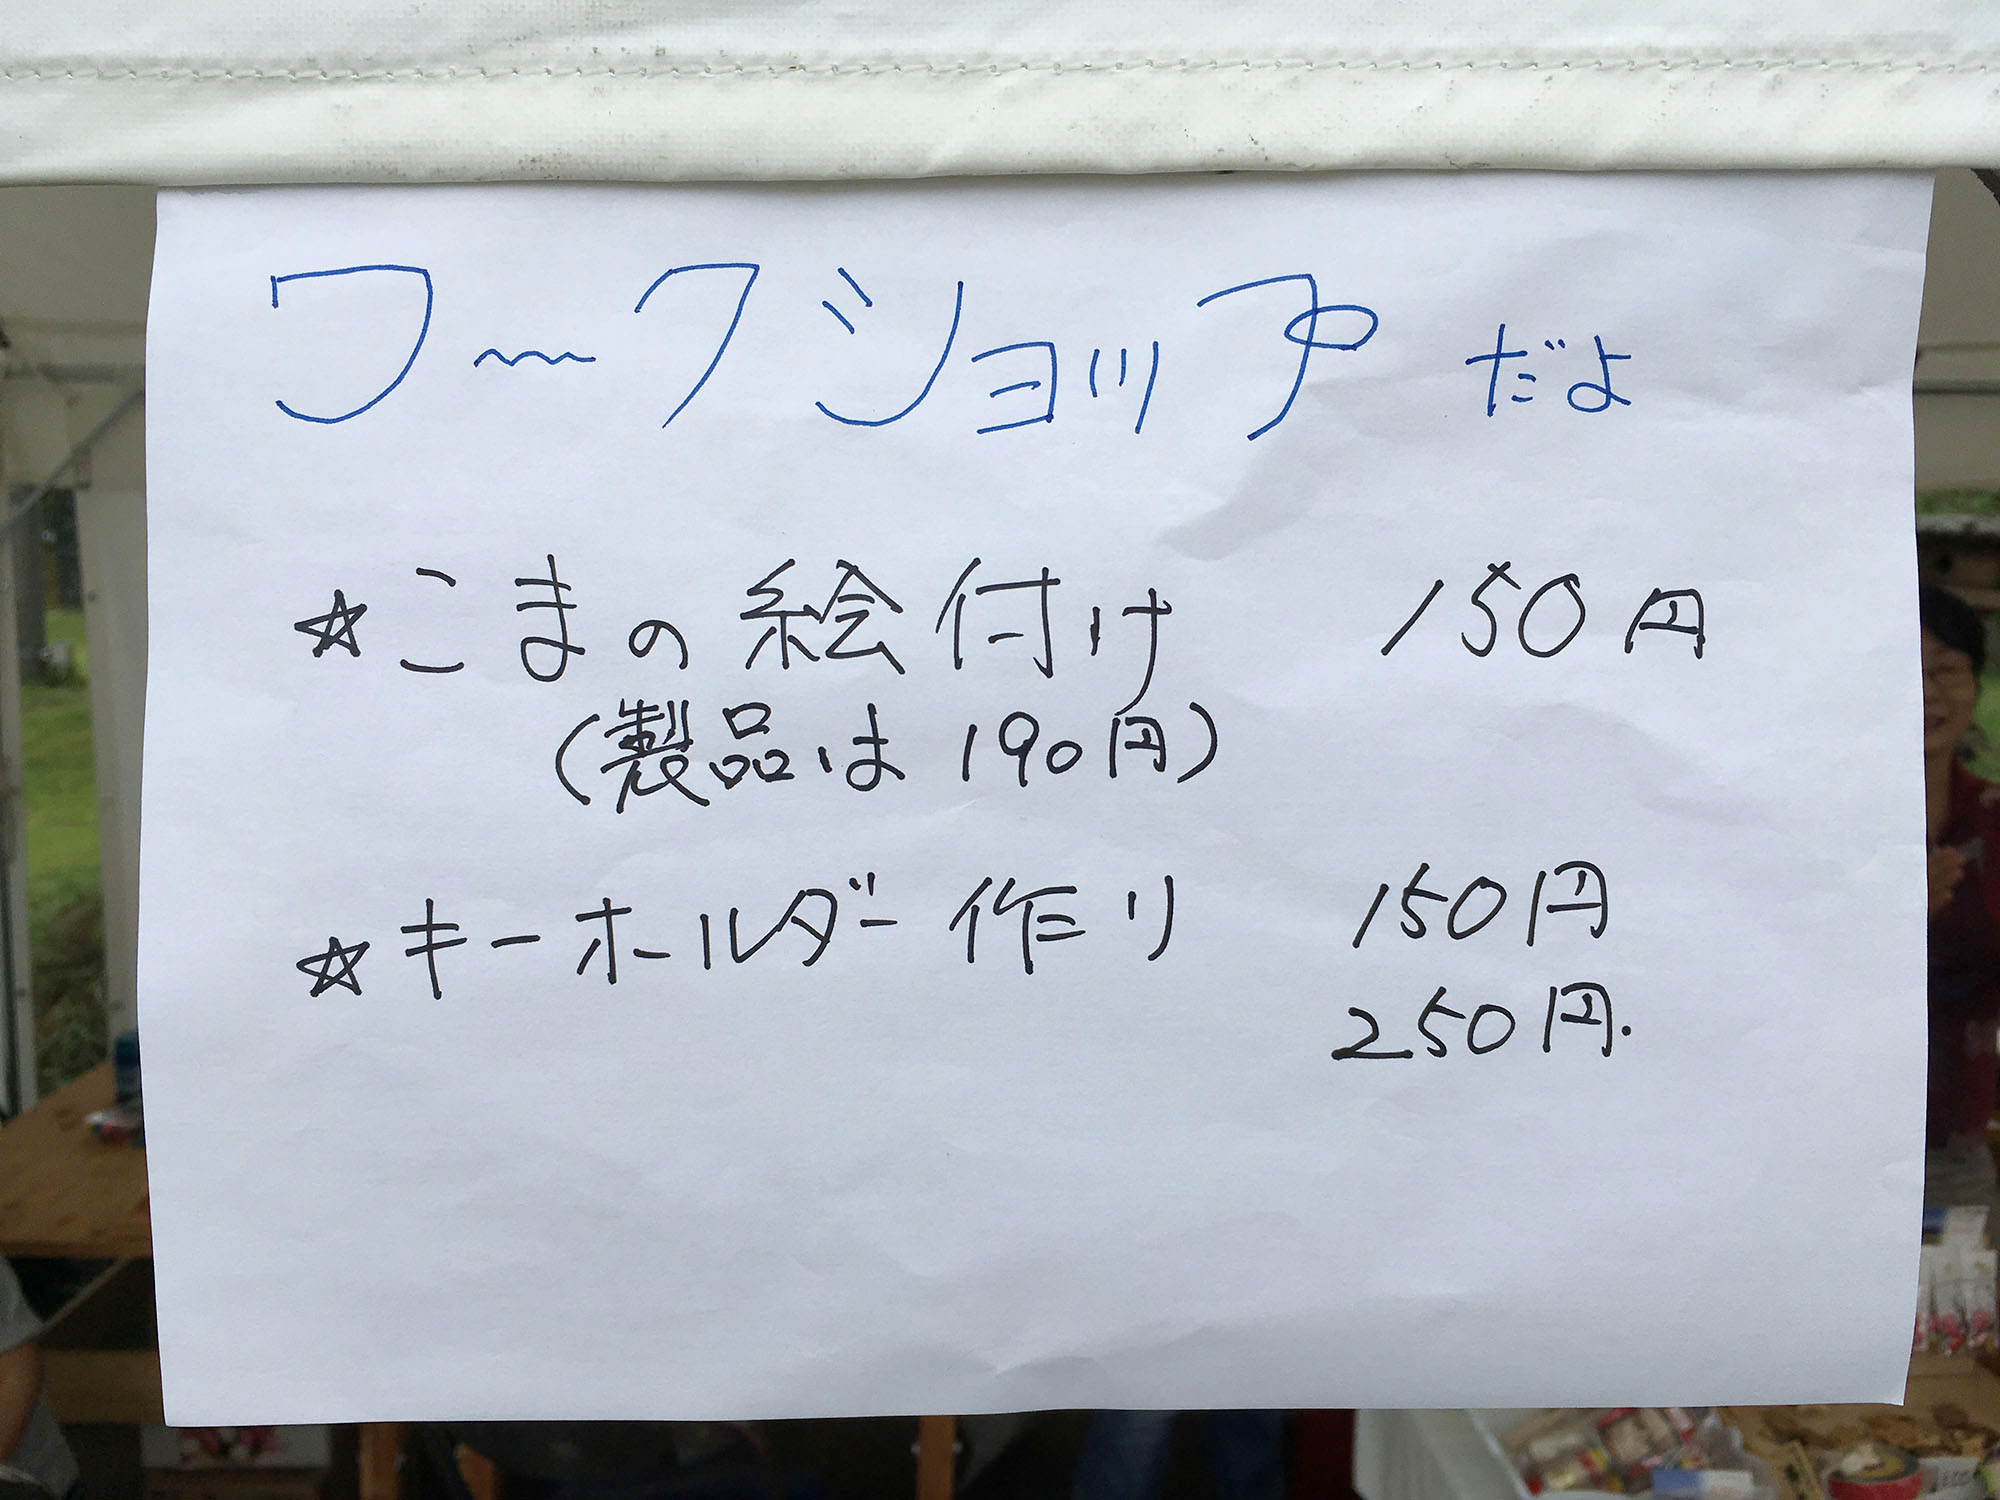 ワークショップ だよ
☆こまの絵付け 150円
(製品は 190円)
☆キーホルダー作り 150円
250円.